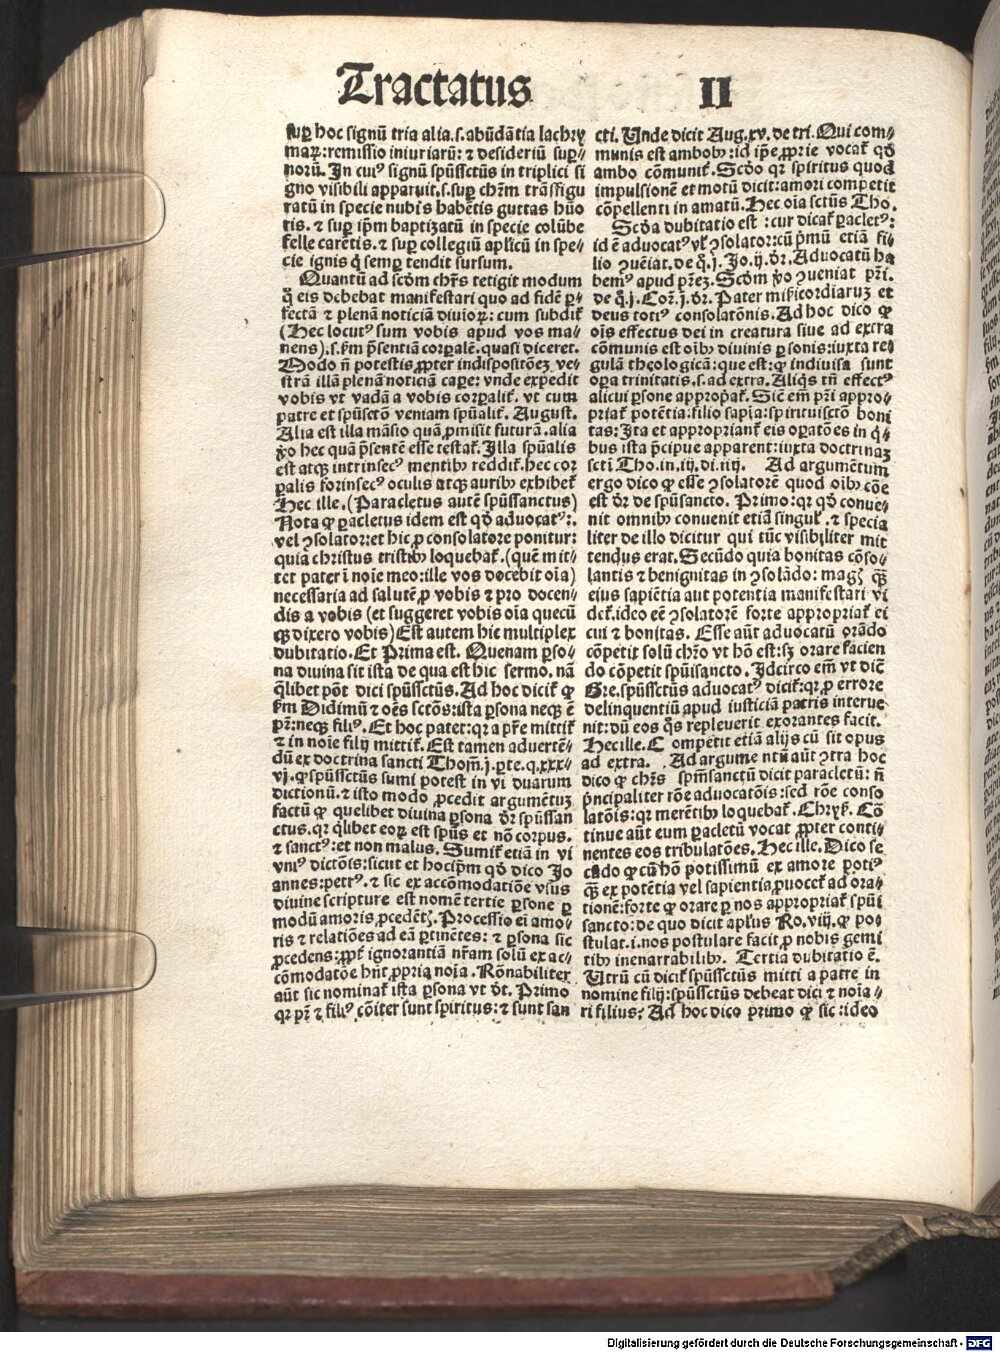 Tractatus II
sup hoc signū tria alia.s.abūdātia lachry
maꝝ:remissio iniuriarū: ⁊ desideriū sup⸗
noꝝ. In cuiꝰ signū spūssctūs in triplici si
gno visibili apparuit.s.sup chr̄m trāsfigu
ratū in specie nubis habētis guttas hūo
ris. ⁊ sup ip̄m baptizatū in specie colūbe
felle carētis. ⁊ sup collegiū aplicū in spe⸗
cie ignis q̄ semꝑ tendit sursum.
Quantū ad scd̄m chr̄s tetigit modum
q̄ eis debebat manifestari quo ad fidē ꝑ⸗
fectā ⁊ plenā noticiā diuioꝝ: cum subdit̄
(Hec locutꝰ sum vobis apud vos ma⸗
nens).s.ẜm p̄sentiā corꝑalē.quasi diceret.
Modo n̄ potestis ꝓpter indispositōeꝫ ve⸗
strā illā plenā noticiā caꝑe: vnde expedit
vobis vt vadā a vobis corꝑalit̄. vt cum
patre et spūsctō veniam spūalit̄. August.
Alia est illa māsio quā ꝓmisit futurā.alia
ꝟo hec quā p̄sentē esse testat̄. Illa spūalis
est atqꝫ intrinsecꝰ mentibꝫ reddit̄.hec cor
ꝑalis forinsecꝰ oculis atqꝫ auribꝫ exhibet̄
Hec ille.(Paracletus autē spūssanctus)
Nota ꝙ ꝑacletus idem est qd̄ aduocatꝰ:.
vel ꝯsolator:et hic ꝓ consolatore ponitur:
quia christus tristibꝫ loquebat̄.(quē mit⸗
tet pater ī noīe meo:ille vos docebit oīa)
necessaria ad salutē ꝓ vobis ⁊ pro docen⸗
dis a vobis (et suggeret vobis oīa quecū
qꝫ dixero vobis) Est autem hic multiplex
dubitatio. Et Prima est. Quenam ꝑso⸗
na diuina sit ista de qua est hic sermo. nā
q̄libet pōt dici spūssctūs. Ad hoc dicit̄ ꝙ
ẜm Didimū ⁊ oēs sctōs:ista ꝑsona neqꝫ ē
pr̄:neqꝫ filiꝰ. Et hoc patet:qꝛ a pr̄e mittit̄
⁊ in noīe filij mittit̄. Est tamen aduertē⸗
dū ex doctrina sancti Thom̄.j.ꝑte.q.xxx⸗
vj. ꝙ spūssctūs sumi potest in vi duarum
dictionū. ⁊ isto modo ꝓcedit argumētuꝫ
factū ꝙ quelibet diuina ꝑsona dr̄ spūssan
ctus.qꝛ q̄libet eoꝝ est spūs et nō corpus.
⁊ sanctꝰ:et non malus. Sumit̄ etiā in vi
vniꝰ dictōis:sicut et hocip̄m qd̄ dico Jo
annes:petrꝰ. ⁊ sic ex accōmodatiōe vsus
diuine scripture est nomē tertie ꝑsone ꝑ
modū amoris ꝓcedētꝭ. Processio ei amo⸗
ris ⁊ relatiōes ad eā ꝑtinētes: ⁊ ꝑsona sic
ꝓcedens:ꝓpt̄ ignorantiā nr̄am solū ex ac⸗
cōmodatōe hn̄t ꝓpria noīa. Rōnabiliter
aūt sic nominat̄ ista ꝑsona vt dt̄. Primo
qꝛ pr̄ ⁊ filiꝰ cōiter sunt spiritus: ⁊ sunt san
cti. Unde dicit Aug.xv. de tri. Qui com⸗
munis est ambobꝫ: id ip̄e ꝓprie vocat̄ qd̄
ambo cōmunit̄. Scd̄o qꝛ spiritus quod
impulsionē et motū dicit:amori competit
cōpellenti in amatū. Hec oīa sctūs Tho.
Scd̄a dubitatio est : cur dicat̄ ꝑacletꝰ:
id ē aduocatꝰ vl̓ ꝯsolator:cū p̄mū etiā fi⸗
lio ꝯueniat. de q̄.j. Jo.ij. dr̄. Aduocatū ha
bemꝰ apud pr̄eꝫ. Scd̄m ꝟo ꝯueniat pr̄i.
de q̄.ij. Coꝝ.j. dr̄. Pater mīscordiaruꝫ et
deus totiꝰ consolatōnis. Ad hoc dico ꝙ
oīs effectus dei in creatura siue ad extra
cōmunis est oībꝫ diuinis ꝑsonis:iuxta re⸗
gulā theologicā: que est: ꝙ indiuisa sunt
oꝑa trinitatis.s.ad extra. Aliq̄s tn̄ effectꝰ
alicui ꝑsone appropat̄. Sic em̄ pr̄i appro⸗
priat̄ potētia: filio sapīa:spirituisctō boni
tas: Ita et appropriant̄ eis oꝑatōes in q̄⸗
bus ista p̄cipue apparent:iuxta doctrinaꝫ
scti Tho.in.iij.di.iiij. Ad argumētum
ergo dico ꝙ esse ꝯsolatorē quod oībꝫ cōe
est dr̄ de spūsancto. Primo: qꝛ qd̄ conue⸗
nit omnibꝫ conuenit etiā singul̓. ⁊ specia
liter de illo dicitur qui tūc visibiliter mit
tendus erat. Secūdo quia bonitas cōso⸗
lantis ⁊ benignitas in ꝯsolādo: magꝭ qꝫ
eius sapiētia aut potentia manifestari vi
det̄.ideo eē ꝯsolatorē forte appropriat̄ ei
cui ⁊ bonitas. Esse aūt aduocatū orādo
cōpetit solū chr̄o vt hō est:sꝫ orare facien
do cōpetit spūisancto. Idcirco em̄ vt dic̄
Gre.spūssctūs aduocatꝰ dicit̄:qꝛ ꝓ errore
delinquentiū apud iusticiā patris interue
nit:dū eos q̄s repleuerit exorantes facit.
Hec ille. Competit etiā alijs cū sit opus
ad extra. Ad argumentū aūt ꝯtra hoc
dico ꝙ chr̄s spm̄sanctū dicit paracletū: n̄
p̄ncipaliter rōe aduocatōis:sed rōe conso
latōis: qꝛ merētibꝫ loquebat̄. Chryſ. Cō
tinue aūt eum ꝑacletū vocat ꝓpter conti⸗
nentes eos tribulatōes. Hec ille. Dico se
cūdo ꝙ cū hō potissimū ex amore ꝑotiꝰ
qꝫ ex potētia vel sapientia ꝓuocet̄ ad ora⸗
tionē:forte ꝙ orare ꝑ nos appropriat̄ spūi
sancto: de quo dicit aplus Ro.viij. ꝙ po⸗
stulat.i.nos postulare facit ꝓ nobis gemi
tibꝫ inenarrabilibꝫ. Tertia dubitatio ē.
Utrū cū dicit̄ spūssctūs mitti a patre in
nomine filij:spūssctūs debeat dici ⁊ noīa⸗
ri filius? Ad hoc dico primo ꝙ sic :ideo
Digitalisierung gefördert durch die Deutsche Forschungsgemeinschaft - DFG